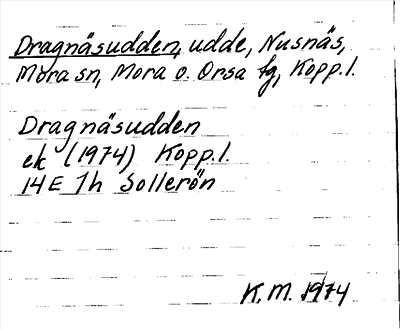 Dragnäsudden, udde, Nusnäs,
Mora sn, Mora o. Orsa tg, Kopp. l.
Dragnäsudden
ek (1974) Kopp. l.
14E 7h Sollerön
K. M. 1974